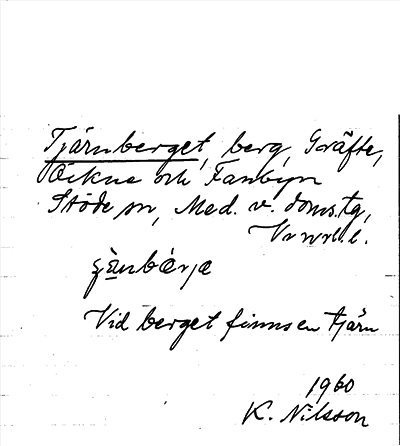 Tjärnberget, berg, Gräfte,
Öckne och Fanbyn
Stöde sn, Med. v. doms.tg,
Vnrrl. l.
Vid berget finns en tjärn
1960
K. Nilsson